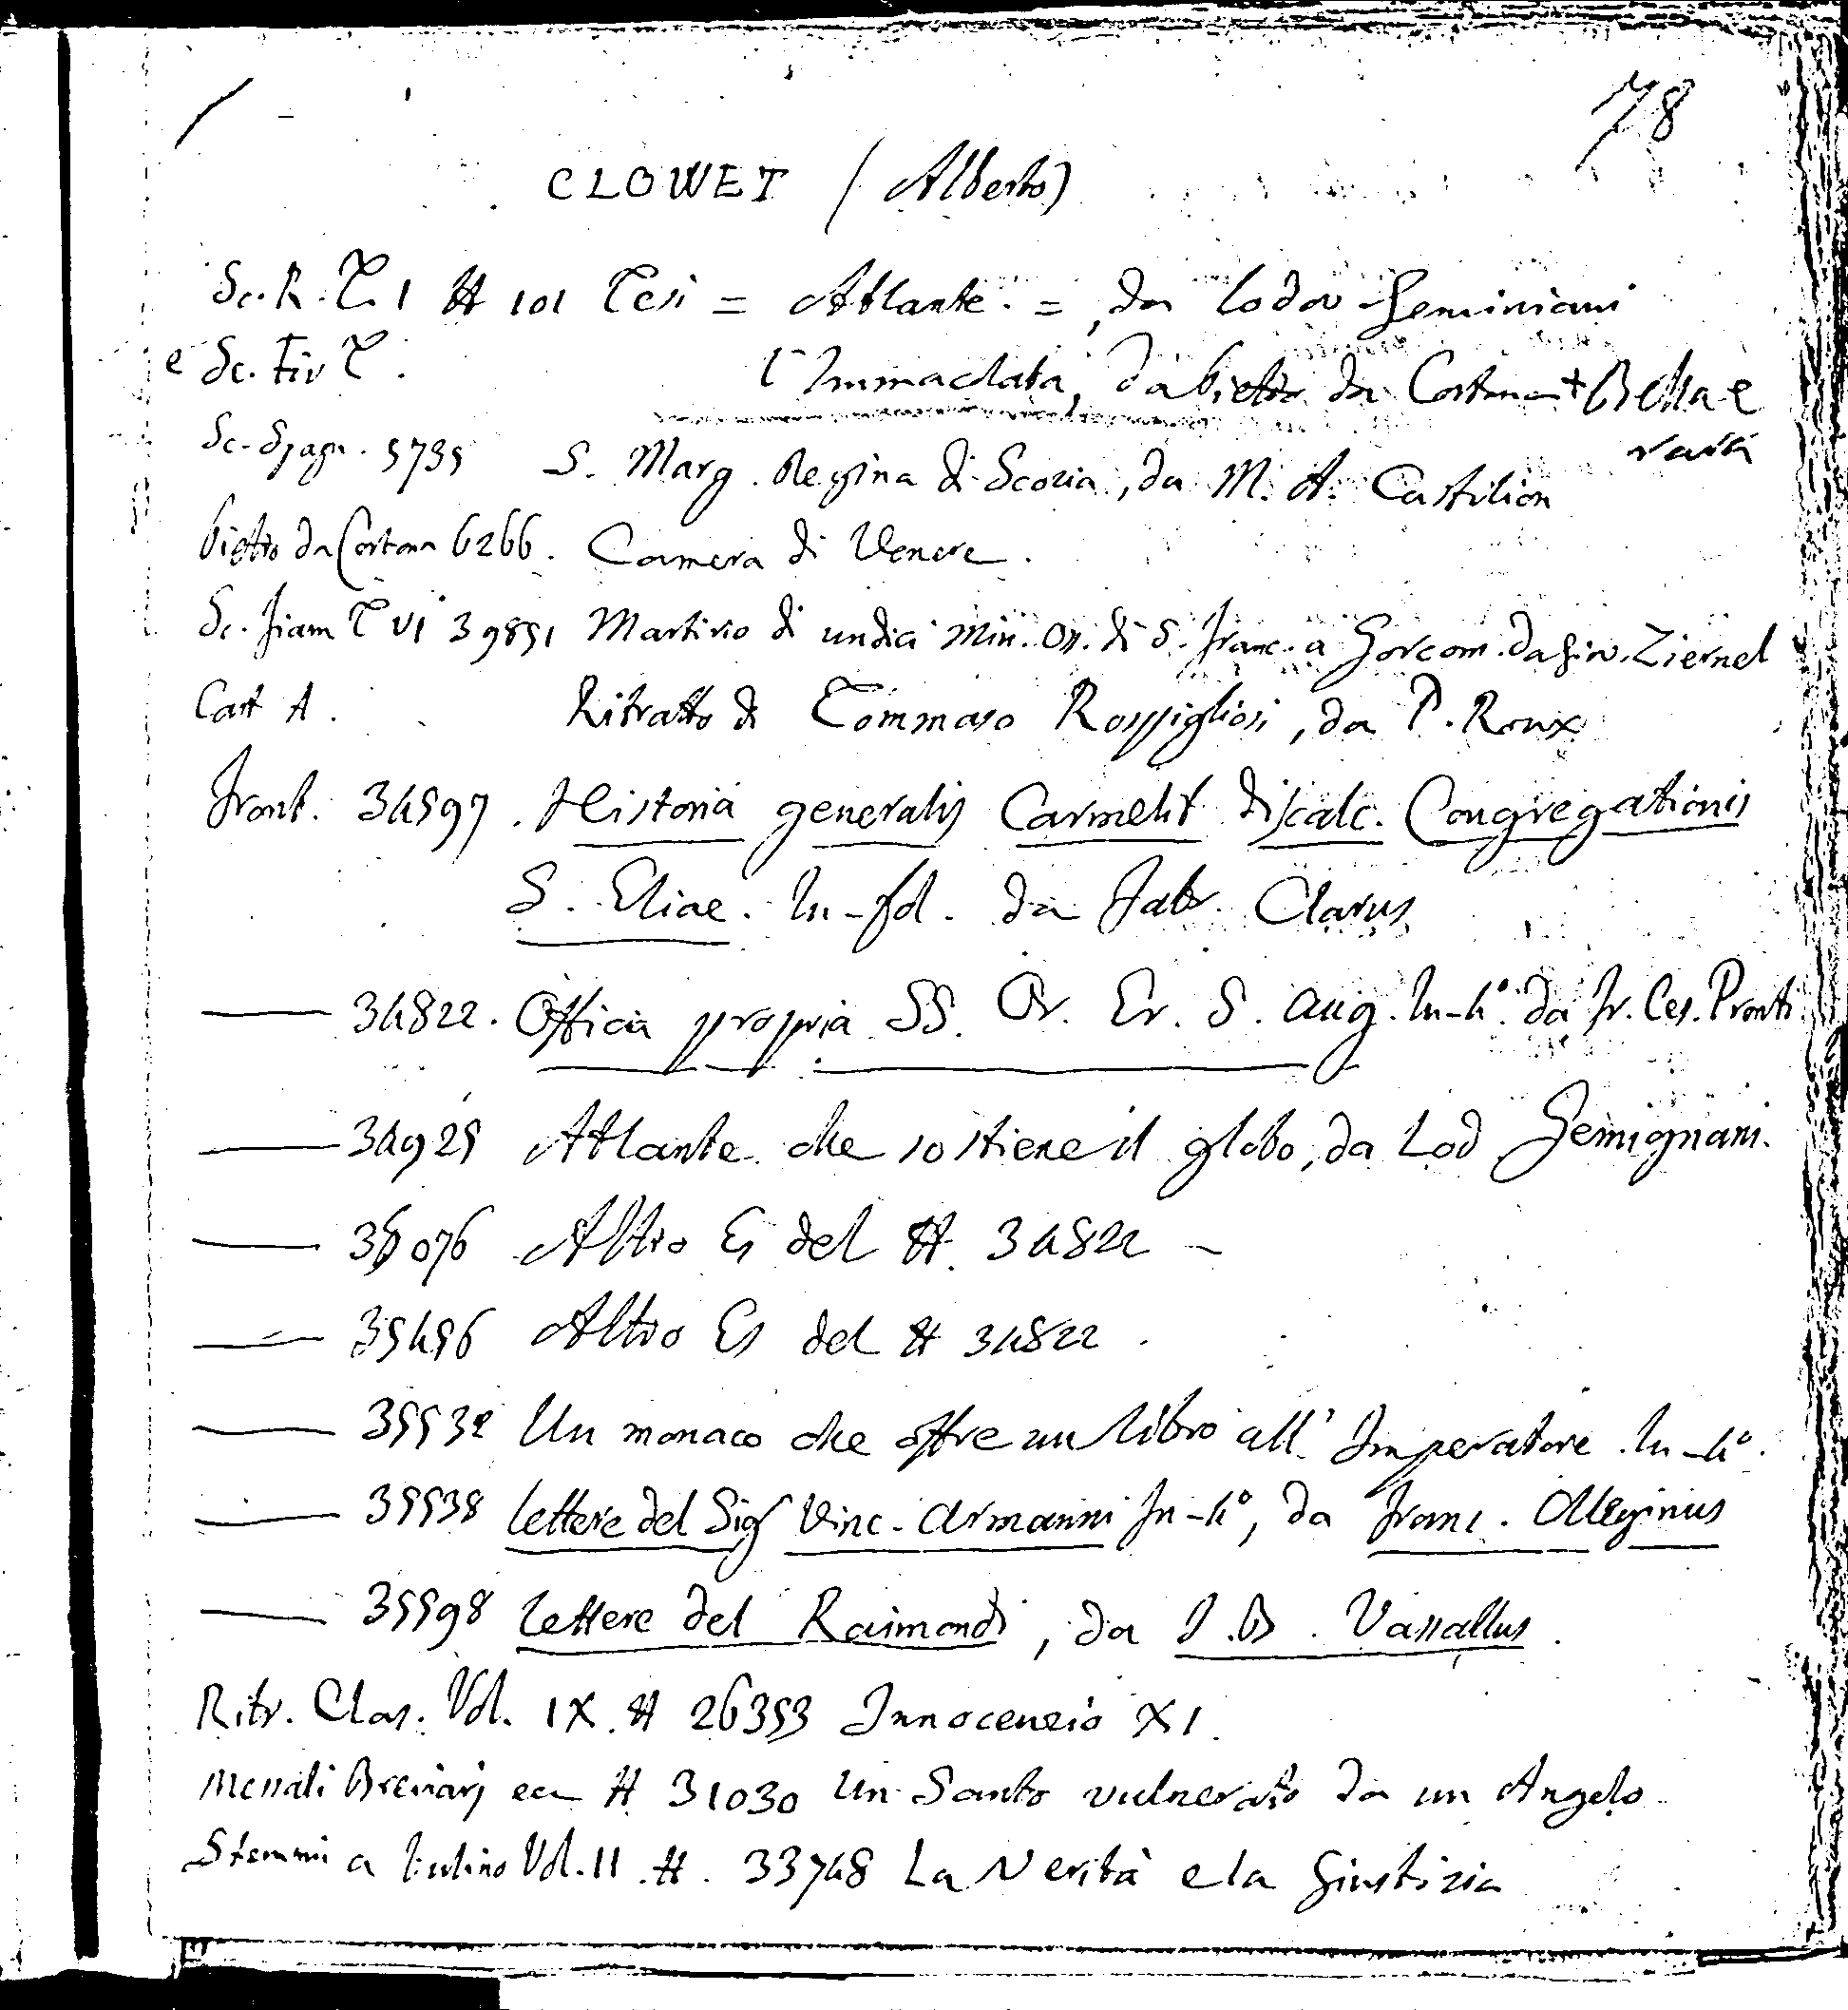 78
CLOWET (Alberto)
Sc. R. T. 1 # 101 Tesi = Atlante. =, da Lodov Geminiani
e Sc. Fiv T.
l'Immaclata, da Pietro da Cortona + Bella e
rarità
Sc. Spagn. 5735 S. Marg. Regina di Scozia, da M. A. Castilion
Pietro da Cortona 6266. Camera di Venere.
Sc. Fiam T VI 39851 Martirio di undici Min. Oss. di S. Franc. a Gorcom. da Giov. Ziernel
Cart A. Ritratto di Tommaso Rospigliosi, da P. Roux
Front. 34597. Historia generalis Carmelit discalc. Congregationis
S. Eliae. In-fol. da Fabr. Clarus
—— 34822. Officia propria SS. Or. Er. S. Aug. In-4°. da Fr. Ces. Pronti
—— 34925 Atlante che sostiene il globo, da Lod Gemignani.
—— 36076 Altro Es del # 34822 -
—— 35456 Altro Es del # 34822.
—— 35532 Un monaco che offre un libro all' Imperatore. In-4°.
—— 35538 Lettere del Sig Vinc. Armanni In-4°, da Franc. Alleginus
—— 35598 Lettere del Raimondi, da J. B. Vassallus.
Ritr. Clas. Vol. IX. # 26353 Innocenzio XI.
Messali Breviarj ecc # 31030 Un Santo vulnerato da un Angelo
Stemmi a bulino Vol. II. #. 33748 La Verità e la Giustizia